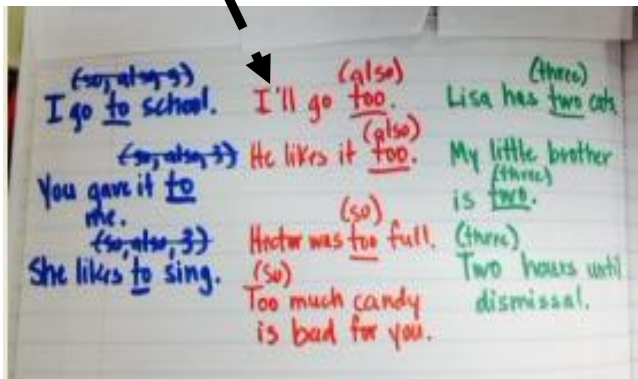 (so, also, 3)
I go to school.
(so, also, 3)
You gave it to
me.
(so, also, 3)
She likes to sing.
(also)
I'll go too.
(also)
He likes it too.
(so)
Hector was too full.
(so)
Too much candy
is bad for you.
(three)
Lisa has two cats.
My little brother
(three)
is two.
(three)
Two hours until
dismissal.